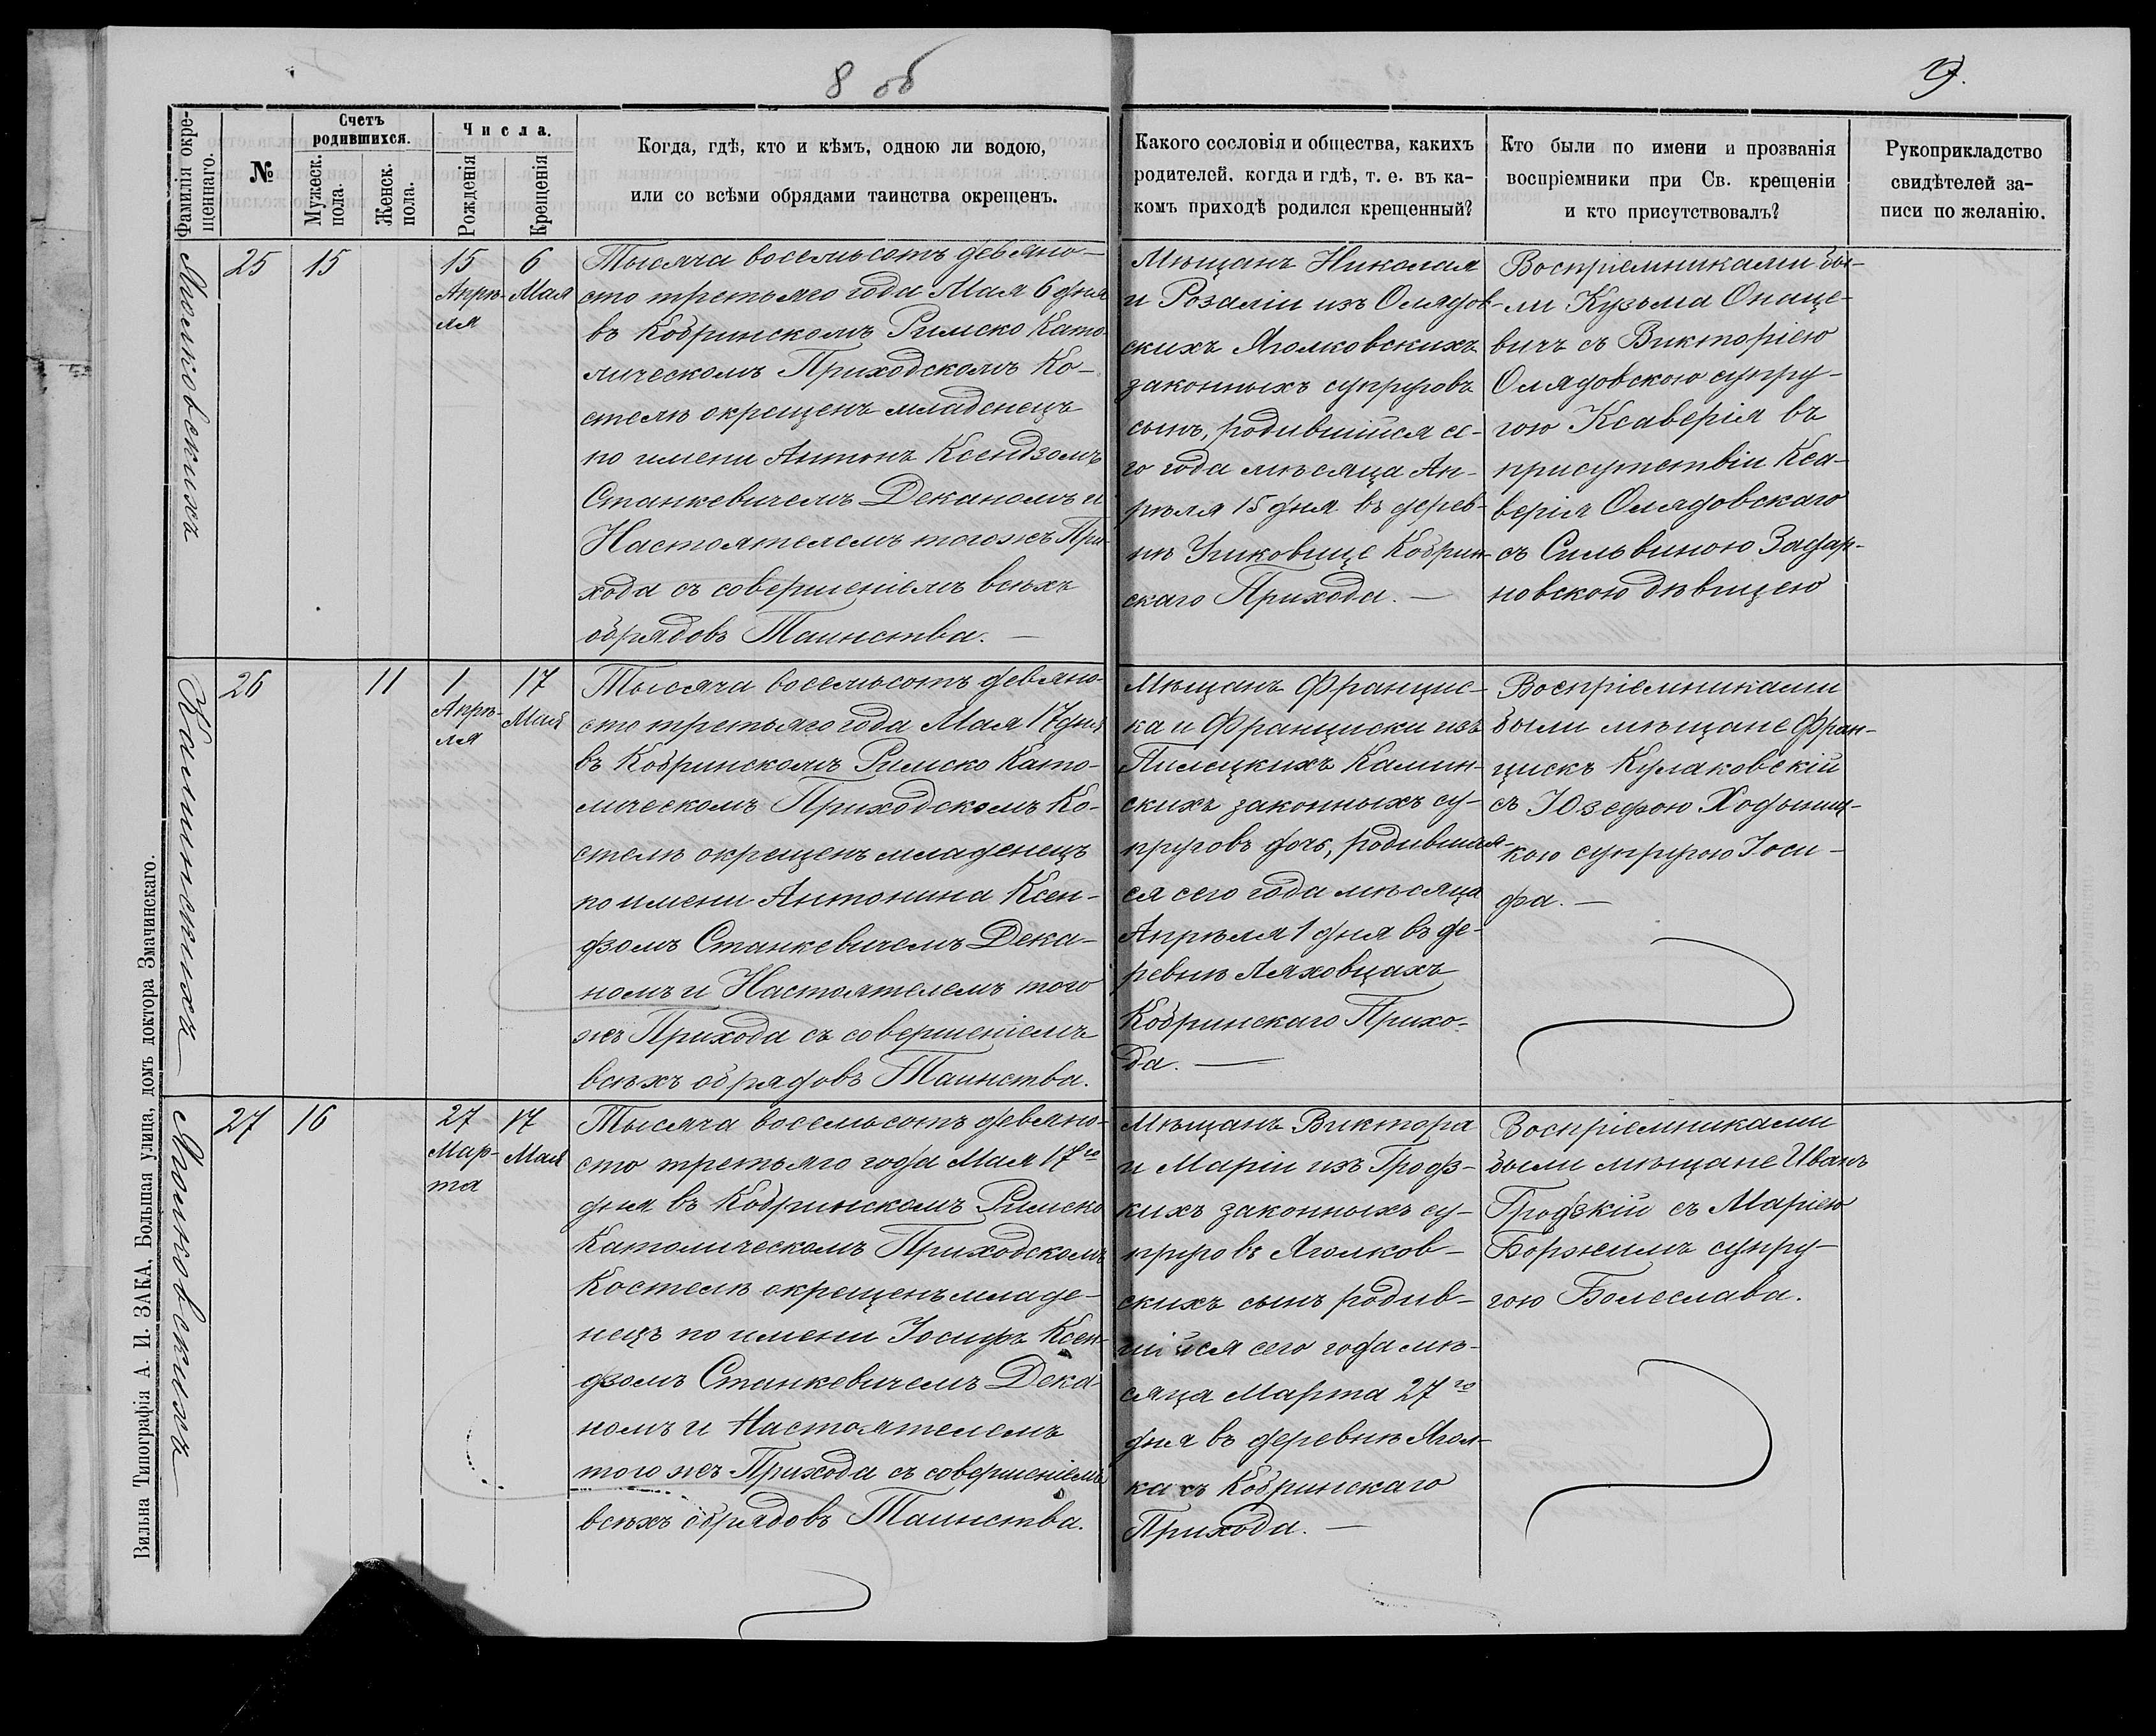 8 об
9.
Фамилія окре-
щеннаго.
№
Счетъ
родившихся.
Мужеск.
пола.
Женск.
пола.
Числа.
Рожденія
Крещенія
Когда, гдѣ, кто и кѣмъ, одною ли водою,
или со всѣми обрядами таинства окрещенъ.
Какого сословія и общества, какихъ
родителей, когда и гдѣ, т. е. въ ка-
комъ приходѣ родился крещенный?
Кто были по имени и прозванія
воспріемники при Св. крещеніи
и кто присутствовалъ?
Рукоприкладство
свидѣтелей за-
писи по желанію.
Яголковскихъ
25
15
15
Апрѣ-
ля
6
Мая
Тысяча восемьсотъ девяно-
сто третьяго года Мая 6 дня
въ Кобринскомъ Римско Като-
лическомъ Приходскомъ Ко-
стелѣ окрещенъ младенецъ
по имени Антонъ Ксендзомъ
Станкевичемъ Деканомъ и
Настоятелемъ тогожъ При-
хода съ совершеніемъ всѣхъ
обрядовъ Таинства. —
Мѣщанъ Николая
и Розаліи изъ Олядов-
скихъ Яголковскихъ
законныхъ супруговъ
сынъ, родившійся се-
го года мѣсяца Ап-
рѣля 15 дня въ дерев-
нѣ Кобрин-
скаго Прихода. —
Воспріемниками бы-
ли Кузьма Онаце-
вичъ съ Викторіею
Олядовскою супру-
гою Ксаверія въ
присутствіи Кса-
верія Олядовскаго
съ Сильвиною Задар-
новскою дѣвицею
Каминскихъ
26
11
1
Апрѣ-
ля
17
Мая
Тысяча восемьсотъ девяно-
сто третьяго года Мая 17 дня
въ Кобринскомъ Римско Като-
лическомъ Приходскомъ Ко-
стелѣ окрещенъ младенецъ
по имени Антонина Ксен-
дзомъ Станкевичемъ Дека-
номъ и Настоятелемъ того
жъ Прихода съ совершеніемъ
всѣхъ обрядовъ Таинства.
Мѣщанъ Францис-
ка и Франциски изъ
Пилецкихъ Камин-
скихъ законныхъ су-
пруговъ дочь, родившая-
ся сего года мѣсяца
Апрѣля 1 дня въ де-
ревнѣ Ляховцахъ
Кобринскаго Прихо-
да. —
Воспріемниками
были мѣщане Фран-
цискъ Кулаковскій
съ Юзефою Ходыниц-
кою супругою Іоси-
фа. —
Яголковскихъ
27
16
27
Мар-
та
17
Мая
Тысяча восемьсотъ девяно-
сто третьяго года Мая 17го
дня въ Кобринскомъ Римско
Католическомъ Приходскомъ
Костелѣ окрещенъ младе-
нецъ по имени Іосифъ Ксен-
дзомъ Станкевичемъ Дека-
номъ и Настоятелемъ
того жъ Прихода съ совершеніемъ
всѣхъ обрядовъ Таинства.
Мѣщанъ Виктора
и Маріи изъ Гродз-
кихъ законныхъ су-
пруговъ Яголков-
скихъ сынъ родив-
шійся сего года мѣ-
сяца Марта 27го
дня въ деревнѣ Ягол-
кахъ Кобринскаго
Прихода. —
Воспріемниками
были мѣщане Иванъ
Гродзкій съ Маріею
Боржимъ супру-
гою Болеслава.
Вильна Типографія А. И. ЗАКА, Большая улица, домъ доктора Змачинскаго.